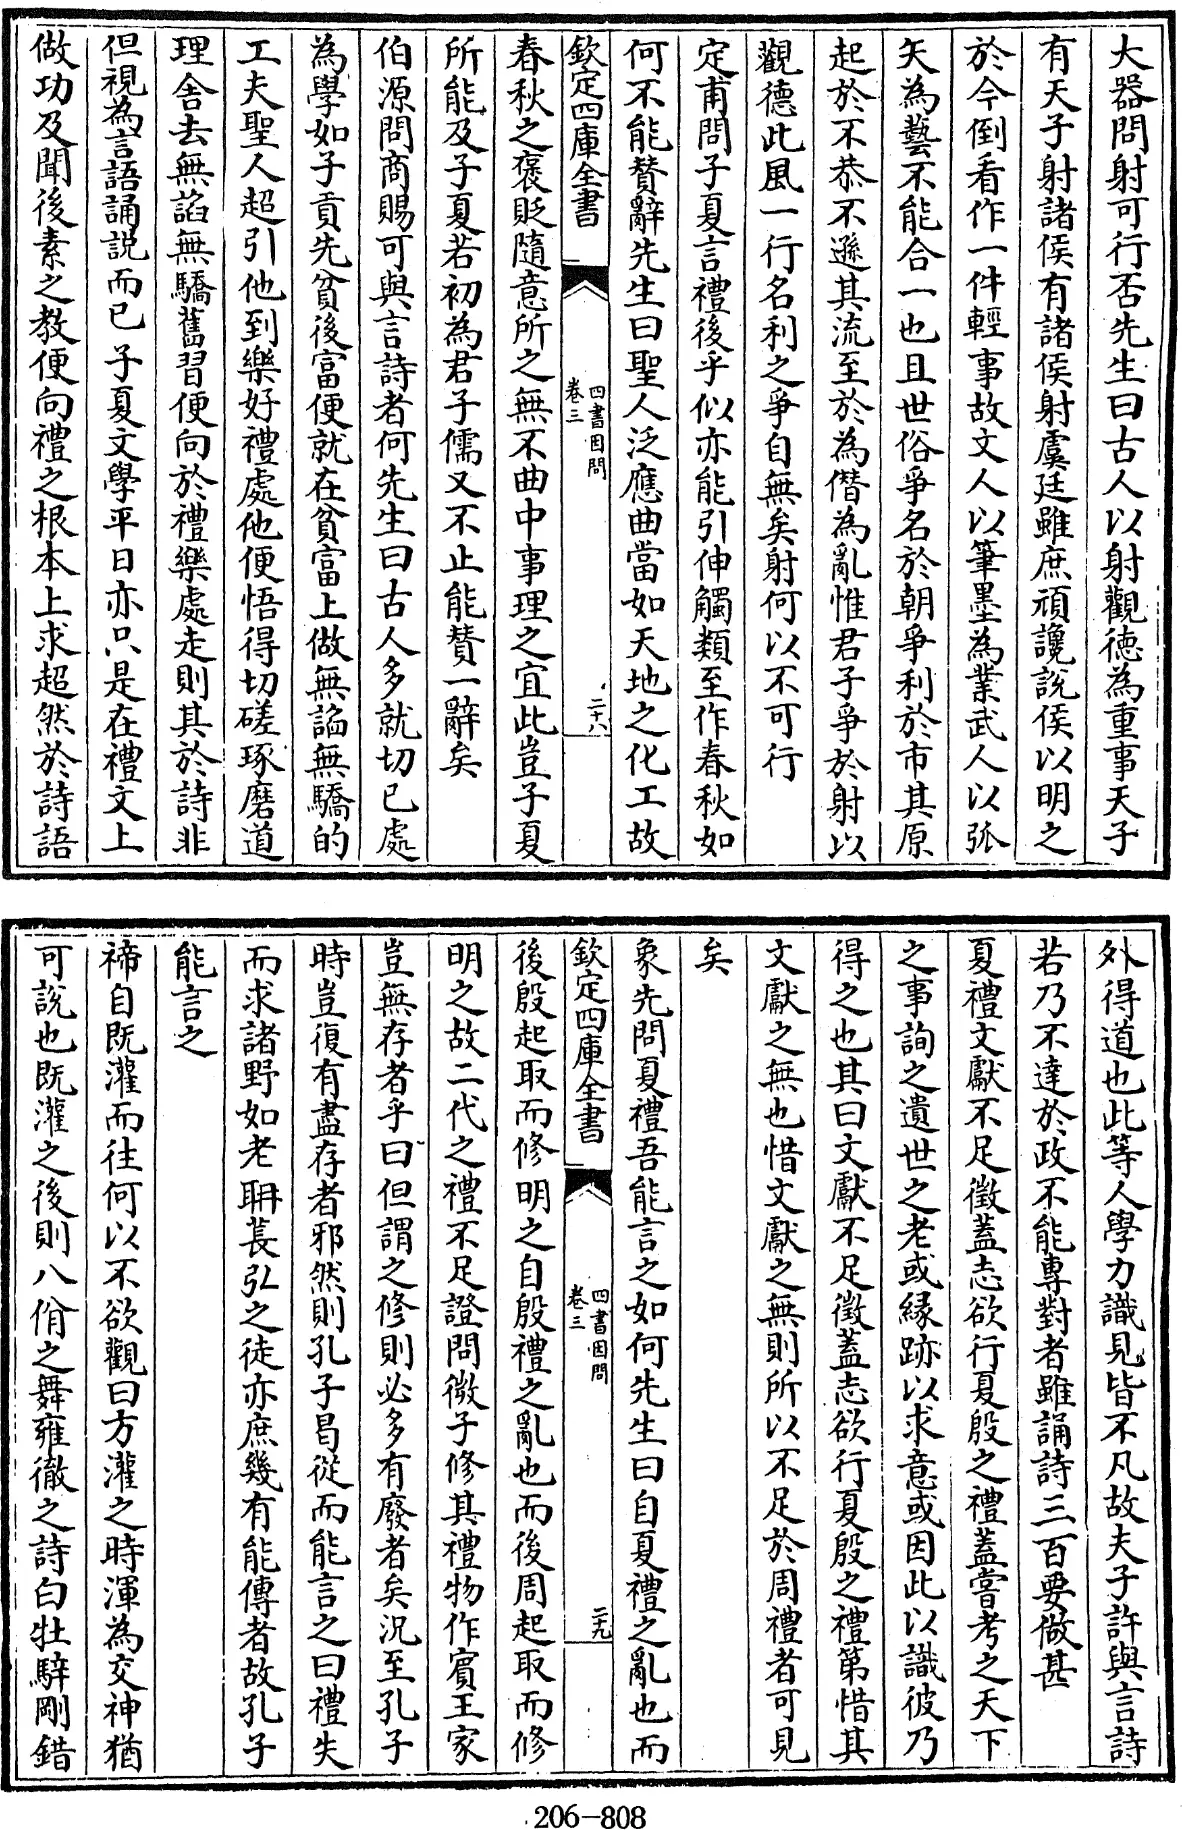 大器問射可行否先生曰古人以射觀德為重事天子
有天子射諸侯有諸侯射虞廷雖庶頑讒說侯以明之
於今倒看作一件輕事故文人以筆墨為業武人以弧
矢為藝不能合一也且世俗爭名於朝爭利於市其原
起於不恭不遜其流至於為僭為亂惟君子爭於射以
觀德此風一行名利之爭自無矣射何以不可行
定甫問子夏言禮後乎似亦能引伸觸類至作春秋如
何不能贊辭先生曰聖人泛應曲當如天地之化工故
欽定四庫全書
四書因問
卷三
二十八
春秋之褒貶隨意所之無不曲中事理之宜此豈子夏
所能及子夏若初為君子儒又不止能贊一辭矣
伯源問商賜可與言詩者何先生曰古人多就切己處
為學如子貢先貧後富便就在貧富上做無諂無驕的
工夫聖人超引他到樂好禮處他便悟得切磋琢磨道
理舍去無諂無驕舊習便向於禮樂處走則其於詩非
但視為言語誦說而已子夏文學平日亦只是在禮文上
做功及聞後素之教便向禮之根本上求超然於詩語
外得道也此等人學力識見皆不凡故夫子許與言詩
若乃不達於政不能專對者雖誦詩三百要做甚
夏禮文獻不足徵蓋志欲行夏殷之禮蓋嘗考之天下
之事詢之遺世之老或緣跡以求意或因此以識彼乃
得之也其曰文獻不足徵蓋志欲行夏殷之禮第惜其
文獻之無也惜文獻之無則所以不足於周禮者可見
矣
象先問夏禮吾能言之如何先生曰自夏禮之亂也而
欽定四庫全書
四書因問
卷三
二十九
後殷起取而修明之自殷禮之亂也而後周起取而修
明之故二代之禮不足證問微子修其禮物作賓王家
豈無存者乎曰但謂之修則必多有廢者矣況至孔子
時豈復有盡存者邪然則孔子曷從而能言之曰禮失
而求諸野如老聃萇弘之徒亦庶幾有能傳者故孔子
能言之
禘自既灌而往何以不欲觀曰方灌之時渾為交神猶
可說也既灌之後則八佾之舞雍徹之詩白牡騂剛錯
206-808